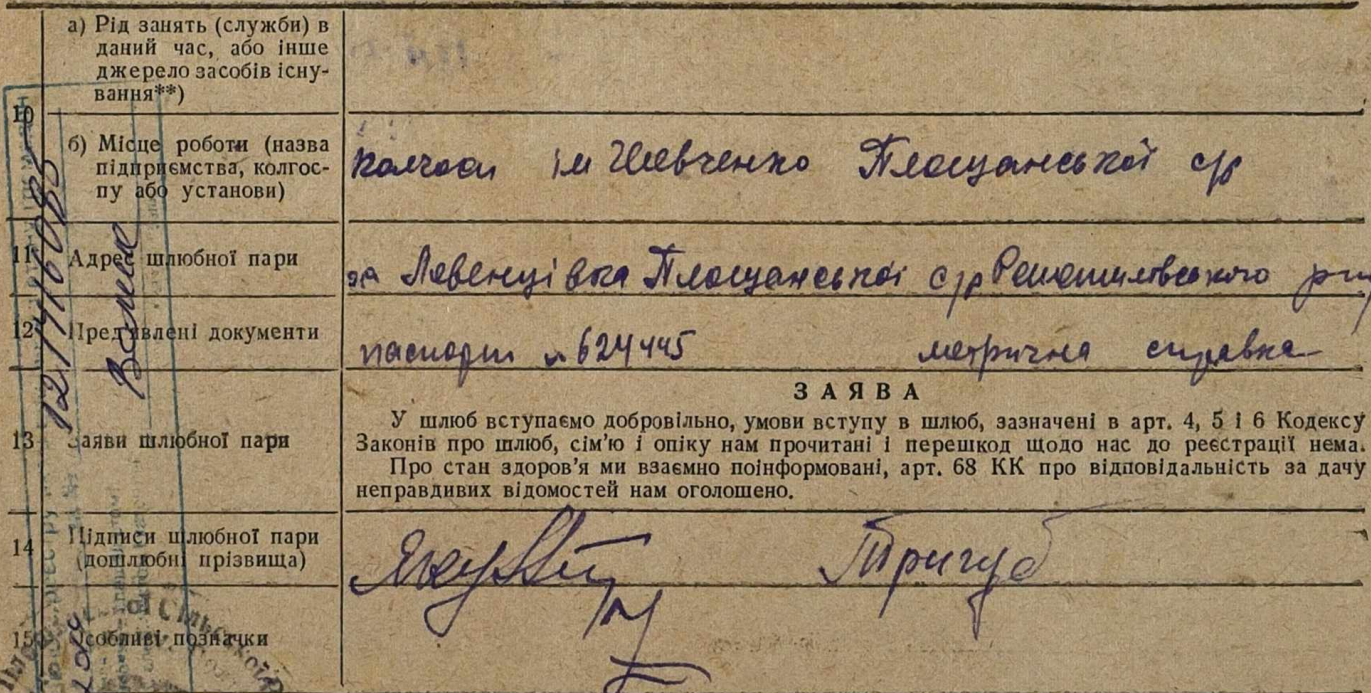 10
а) Рід занять (служби) в
даний час, або інше
джерело засобів існу-
вання**)
б) Місце роботи (назва
підприємства, колгос-
пу або установи)
колгосп ім Шевченко Площанської с/р
11 Адрес шлюбної пари
Левенцівка Площанської с/р Решетилівського р-ну
12 Пред'явлені документи
паспорт № 624445 метрична справка
13 Заяви шлюбної пари
ЗАЯВА
У шлюб вступаємо добровільно, умови вступу в шлюб, зазначені в арт. 4, 5 і 6 Кодексу
Законів про шлюб, сім'ю і опіку нам прочитані і перешкод щодо нас до реєстрації нема.
Про стан здоров'я ми взаємно поінформовані, арт. 68 КК про відповідальність за дачу
неправдивих відомостей нам оголошено.
14 Підписи шлюбної пари
(дошлюбні прізвища)
Тригуб
15 Особливі позначки